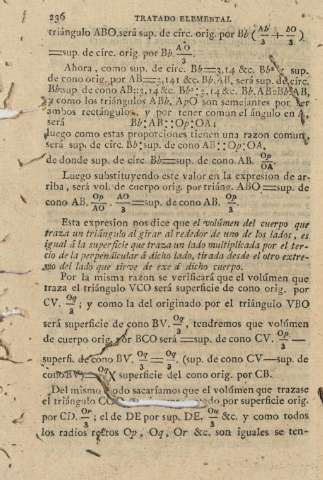 236 TRATADO ELEMENTAL
triángulo ABO, será sup. de circ. orig. por Bb (Ab/3 + bO/3)
=sup. de circ. orig. por Bb. AO/3.
Ahora, como sup. de circ. Bb=3,14 &c. Bb²; sup.
de cono orig. por AB=3,141 &c. Bb. AB, será sup. de circ.
Bb:sup. de cono AB::3,14 &c. Bb²:3,14 &c. Bb. AB::Bb:AB,
y como los triángulos ABb, ApO son semejantes por ser
ambos rectángulos, y por tener comun el ángulo en A,
será Bb:AB::Op:OA;
luego como estas proporciones tienen una razon comun,
será sup. de circ. Bb:sup. de cono AB::Op:OA,
de donde sup. de circ. Bb=sup. de cono AB. Op/OA
Luego substituyendo este valor en la expresion de ar-
riba, será vol. de cuerpo orig. por triáng. ABO=sup. de
cono AB. Op/AO. AO/3=sup. de cono AB. Op/3.
Esta expresion nos dice que el volúmen del cuerpo que
traza un triángulo al girar al rededor de uno de los lados, es
igual á la superficie que traza un lado multiplicada por el ter-
cio de la perpendicular á dicho lado, tirada desde el otro extre-
mo del lado que sirve de exe á dicho cuerpo.
Por la misma razon se verificará que el volúmen que
traza el triángulo VCO será superficie de cono orig. por
CV. Oq/3; y como la del originado por el triángulo VBO
será superficie de cono BV. Oq/3, tendremos que volúmen
de cuerpo orig. por BCO será=sup. de cono CV. Op/3—
superfi. de cono BV. Oq/3=Oq/3. (sup. de cono CV—sup. de
cono BV)=Oq/3 × superficie del cono orig. por CB.
Del mismo modo sacaríamos que el volúmen que trazase
el triángulo por superficie orig.
por CD. Or/3; el de DE por sup. DE. Ou/3 &c. y como todos
los radios rectos Op, Oq, Or &c. son iguales se ten-